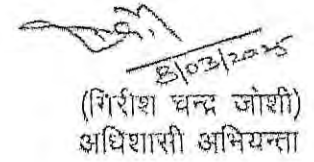 8/03/2025
(गिरीश चन्द्र जोशी)
अधिशासी अभियन्ता